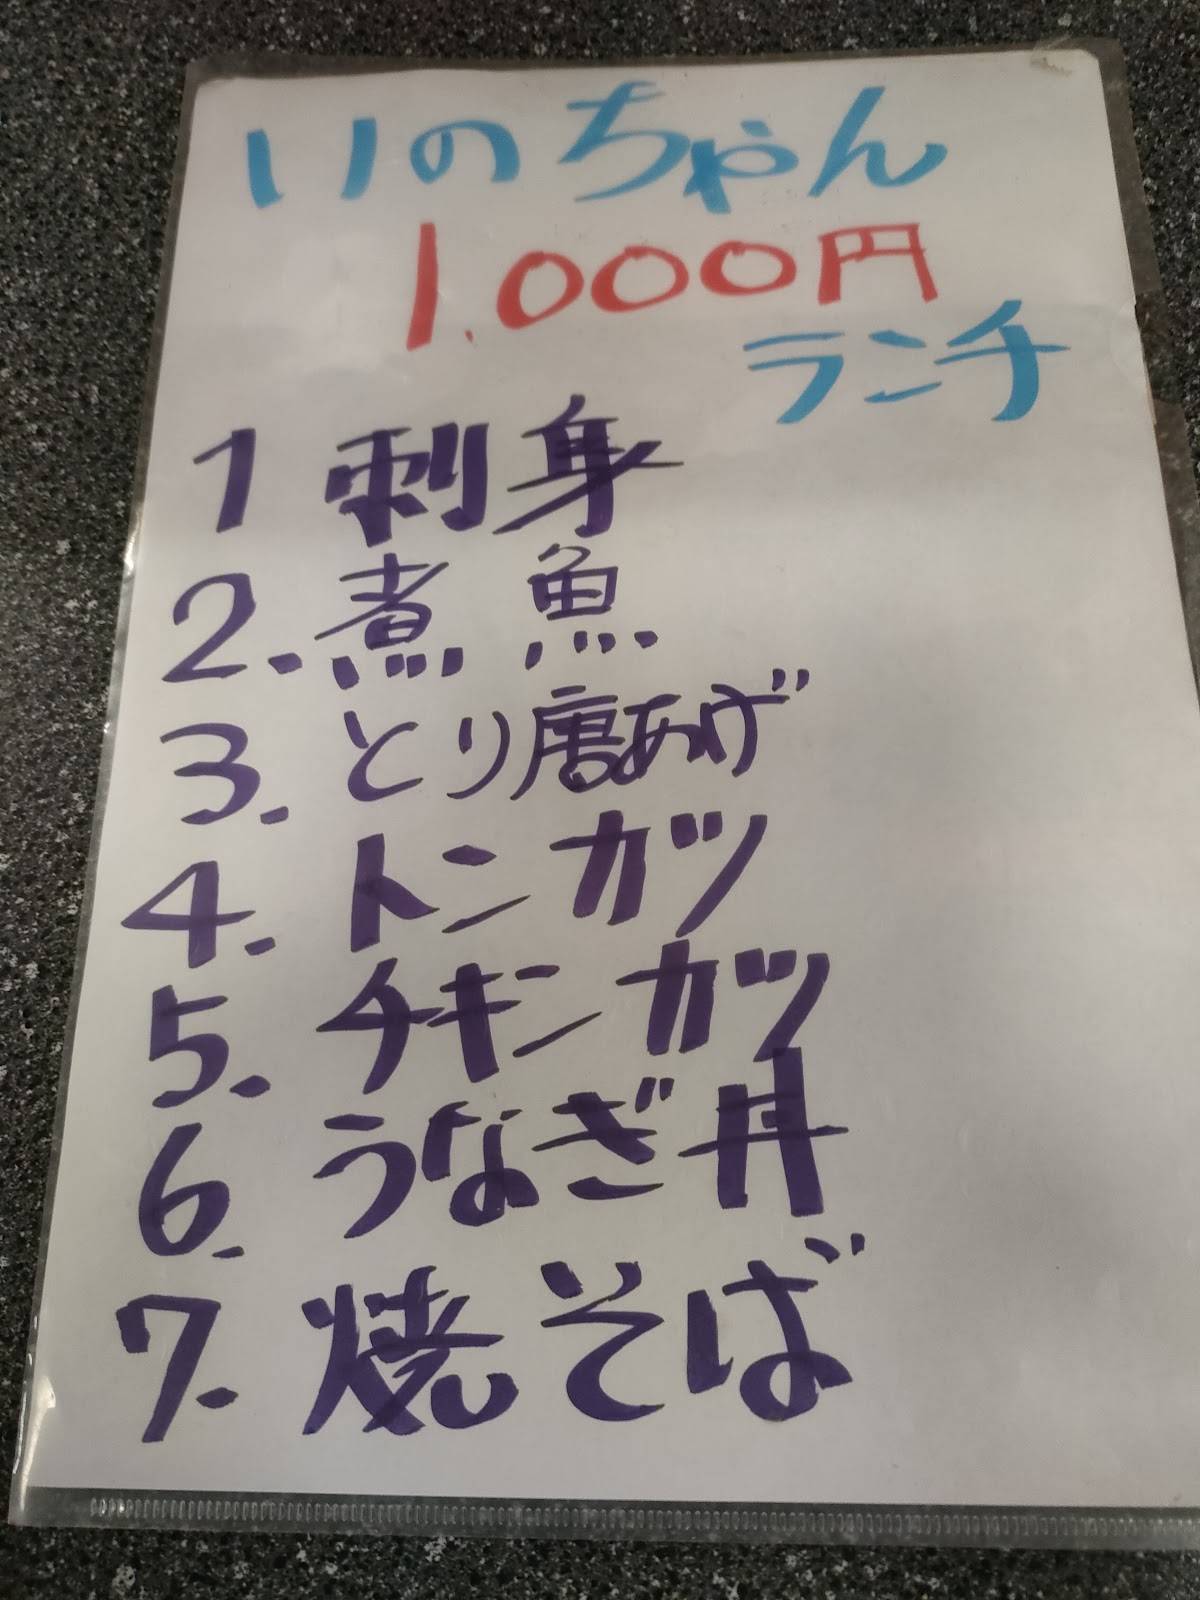 いのちゃん
1.000円
ランチ
1 刺身
2. 煮魚
3. とり唐あげ
4. トンカツ
5. チキンカツ
6. うなぎ丼
7. 焼そば